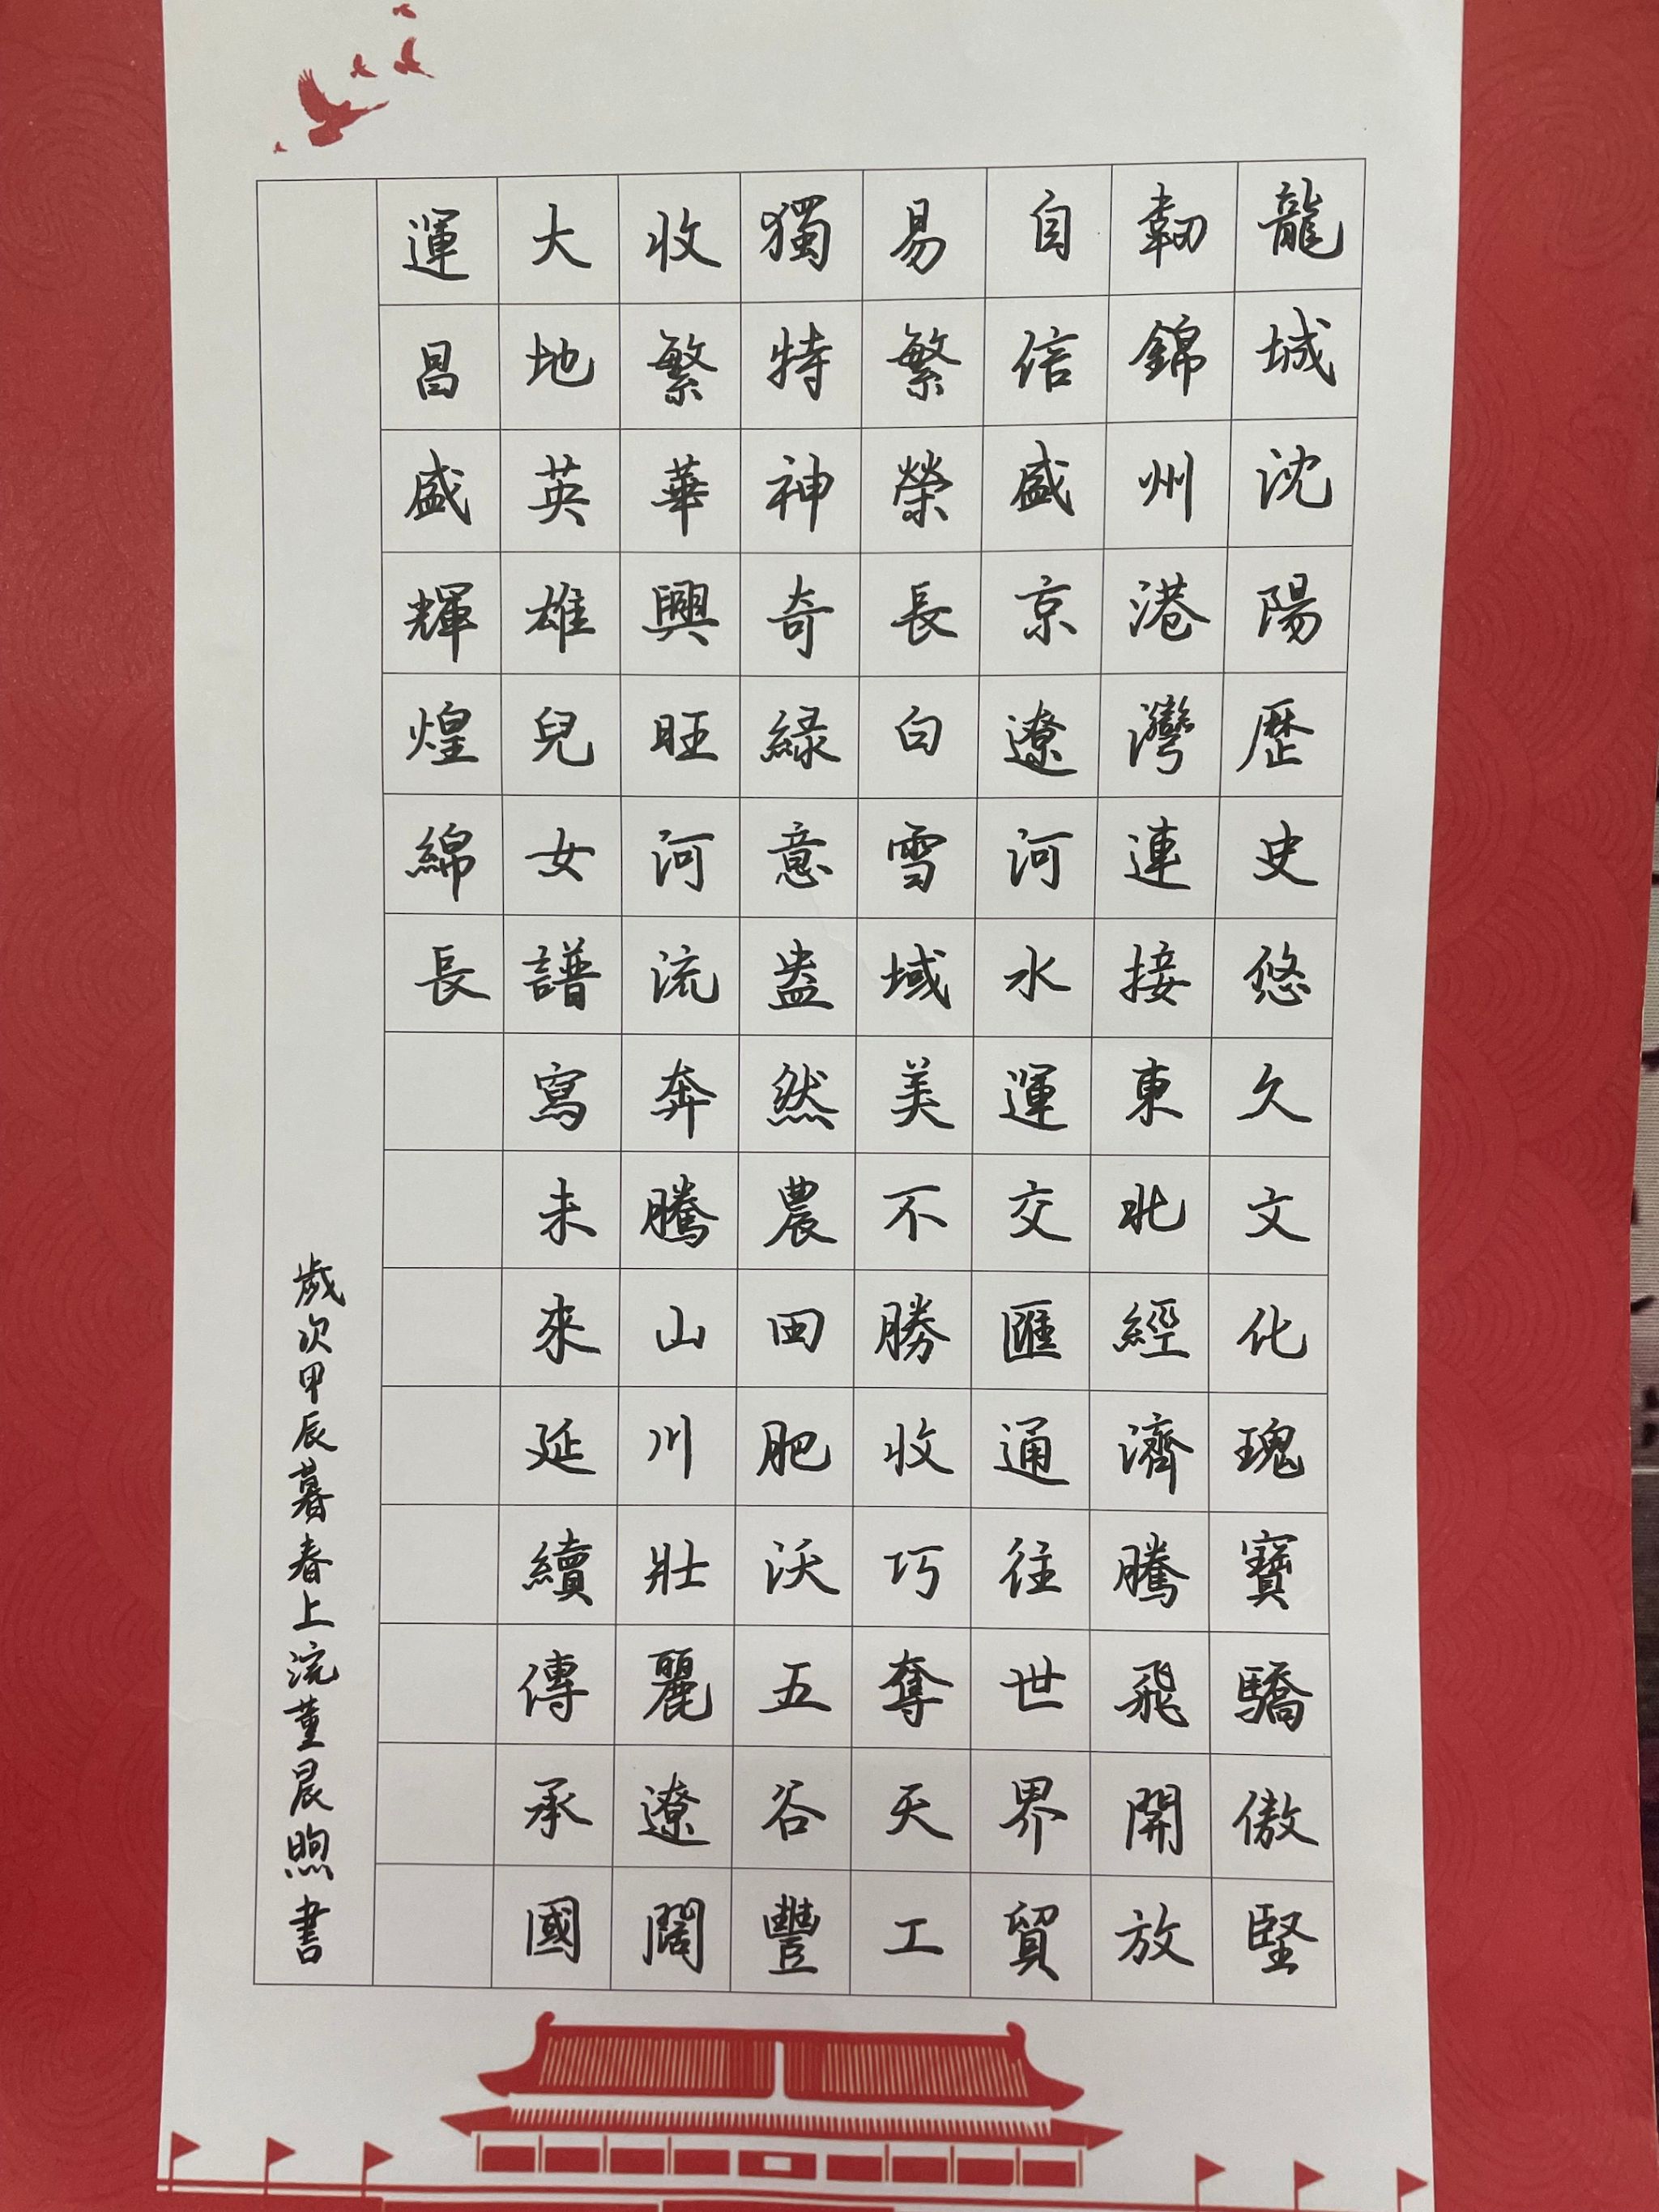 龍城沈陽歷史悠久文化瑰寶驕傲堅
韌錦州港灣連接東北經濟騰飛開放
自信盛京遼河水運交匯通往世界貿
易繁榮長白雪域美不勝收巧奪天工
獨特神奇綠意盎然農田肥沃五谷豐
收繁華興旺河流奔騰山川壯麗遼闊
大地英雄兒女譜寫未來延續傳承國
運昌盛輝煌綿長
歲次甲辰暮春上浣董晨煦書